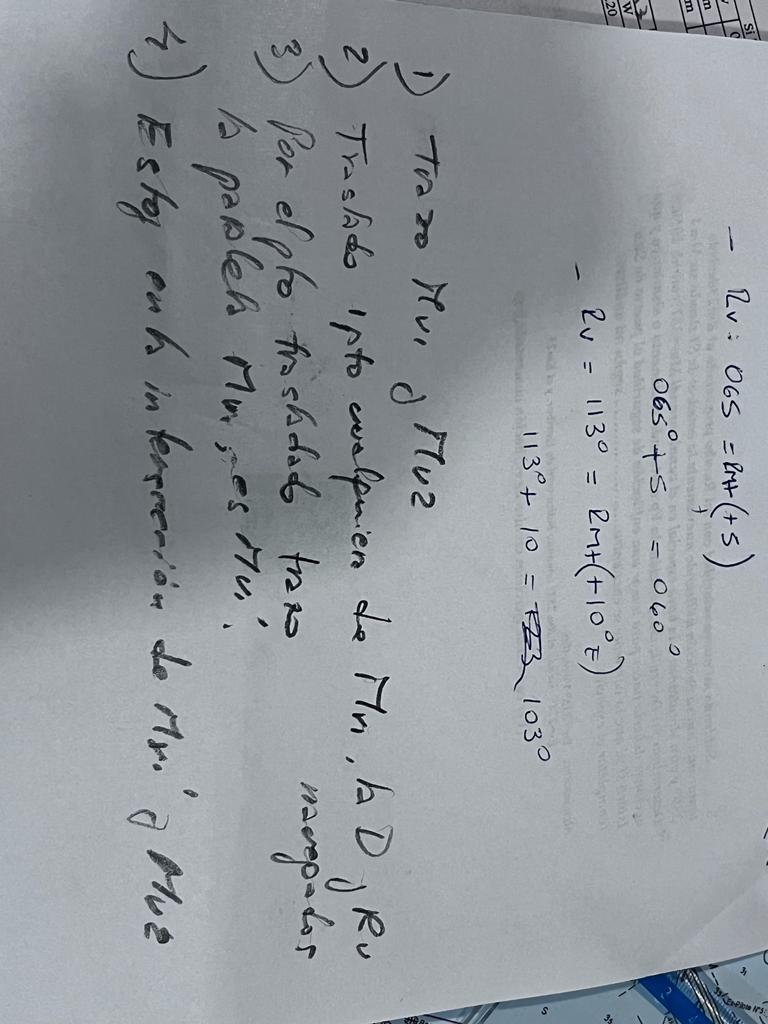 - Rv: 065 = Rm+(+5)
065° + 5 = 060°
- Rv = 113° = Rm+(+10°E)
113° + 10 = 103°
1) Trazo Mv1 y Mv2
2) Traslado 1 pto cualquiera de Mv1, la D y Rv
navegados
3) Por el pto trasladado trazo
la paralela Mv1, es Mv1'
4) Estoy en la intersección de Mv1' y Mv2